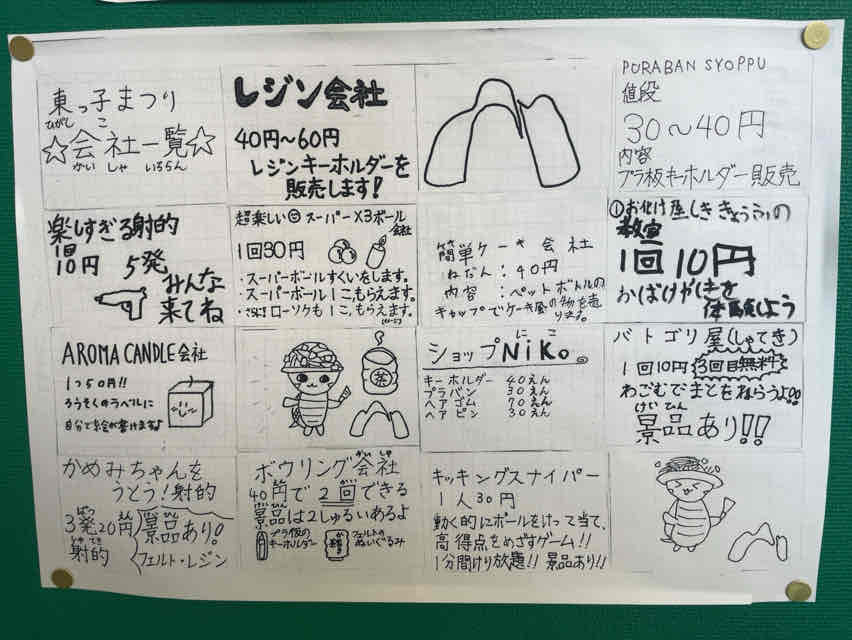 東っ子まつり
ひがし こ
☆会社一覧☆
かい しゃ いちらん
レジン会社
40円～60円
レジンキーホルダーを
販売します!
PURABAN SYOPPU
値段
30～40円
内容
プラ板キーホルダー販売
楽しすぎる射的
1回
10円 5発
みんな
来てね
超楽しい スーパーX3ボール
会社
1回30円
・スーパーボールすくいをします。
・スーパーボール1こもらえます。
・さらに!ローソクも1こ、もらえます。
簡単ケーキ会社
ねだん:40円
内容:ペットボトルの
キャップでケーキ風の物を売
ります。
①お化け屋しききょうふの
教室
1回10円
おばけやしきを
体験しよう
AROMA CANDLE会社
1つ50円!!
ろうそくのラベルに
自分で絵が書けますよ
茶
ショップNiKo。
にこ
キーホルダー 40えん
プラバン 30えん
ヘアゴム 70えん
ヘアピン 30えん
バトゴリ屋(しゃてき)
1回10円 3回目無料
わごむでまとをねらうよ!!
けいひん
景品あり!!
かめみちゃんを
うとう!射的
3発20円
ぱつ
射的
しゃてき
景品あり!
フェルト・レジン
ボウリング会社
がいしゃ
40円で2回できる
景品は2しゅるいあるよ
プラ板の
キーホルダー
フェルトの
ぬいぐるみ
キッキングスナイパー
1人30円
動く的にボールをけって当て、
高得点をめざすゲーム!!
1分間けり放題!! 景品あり!!